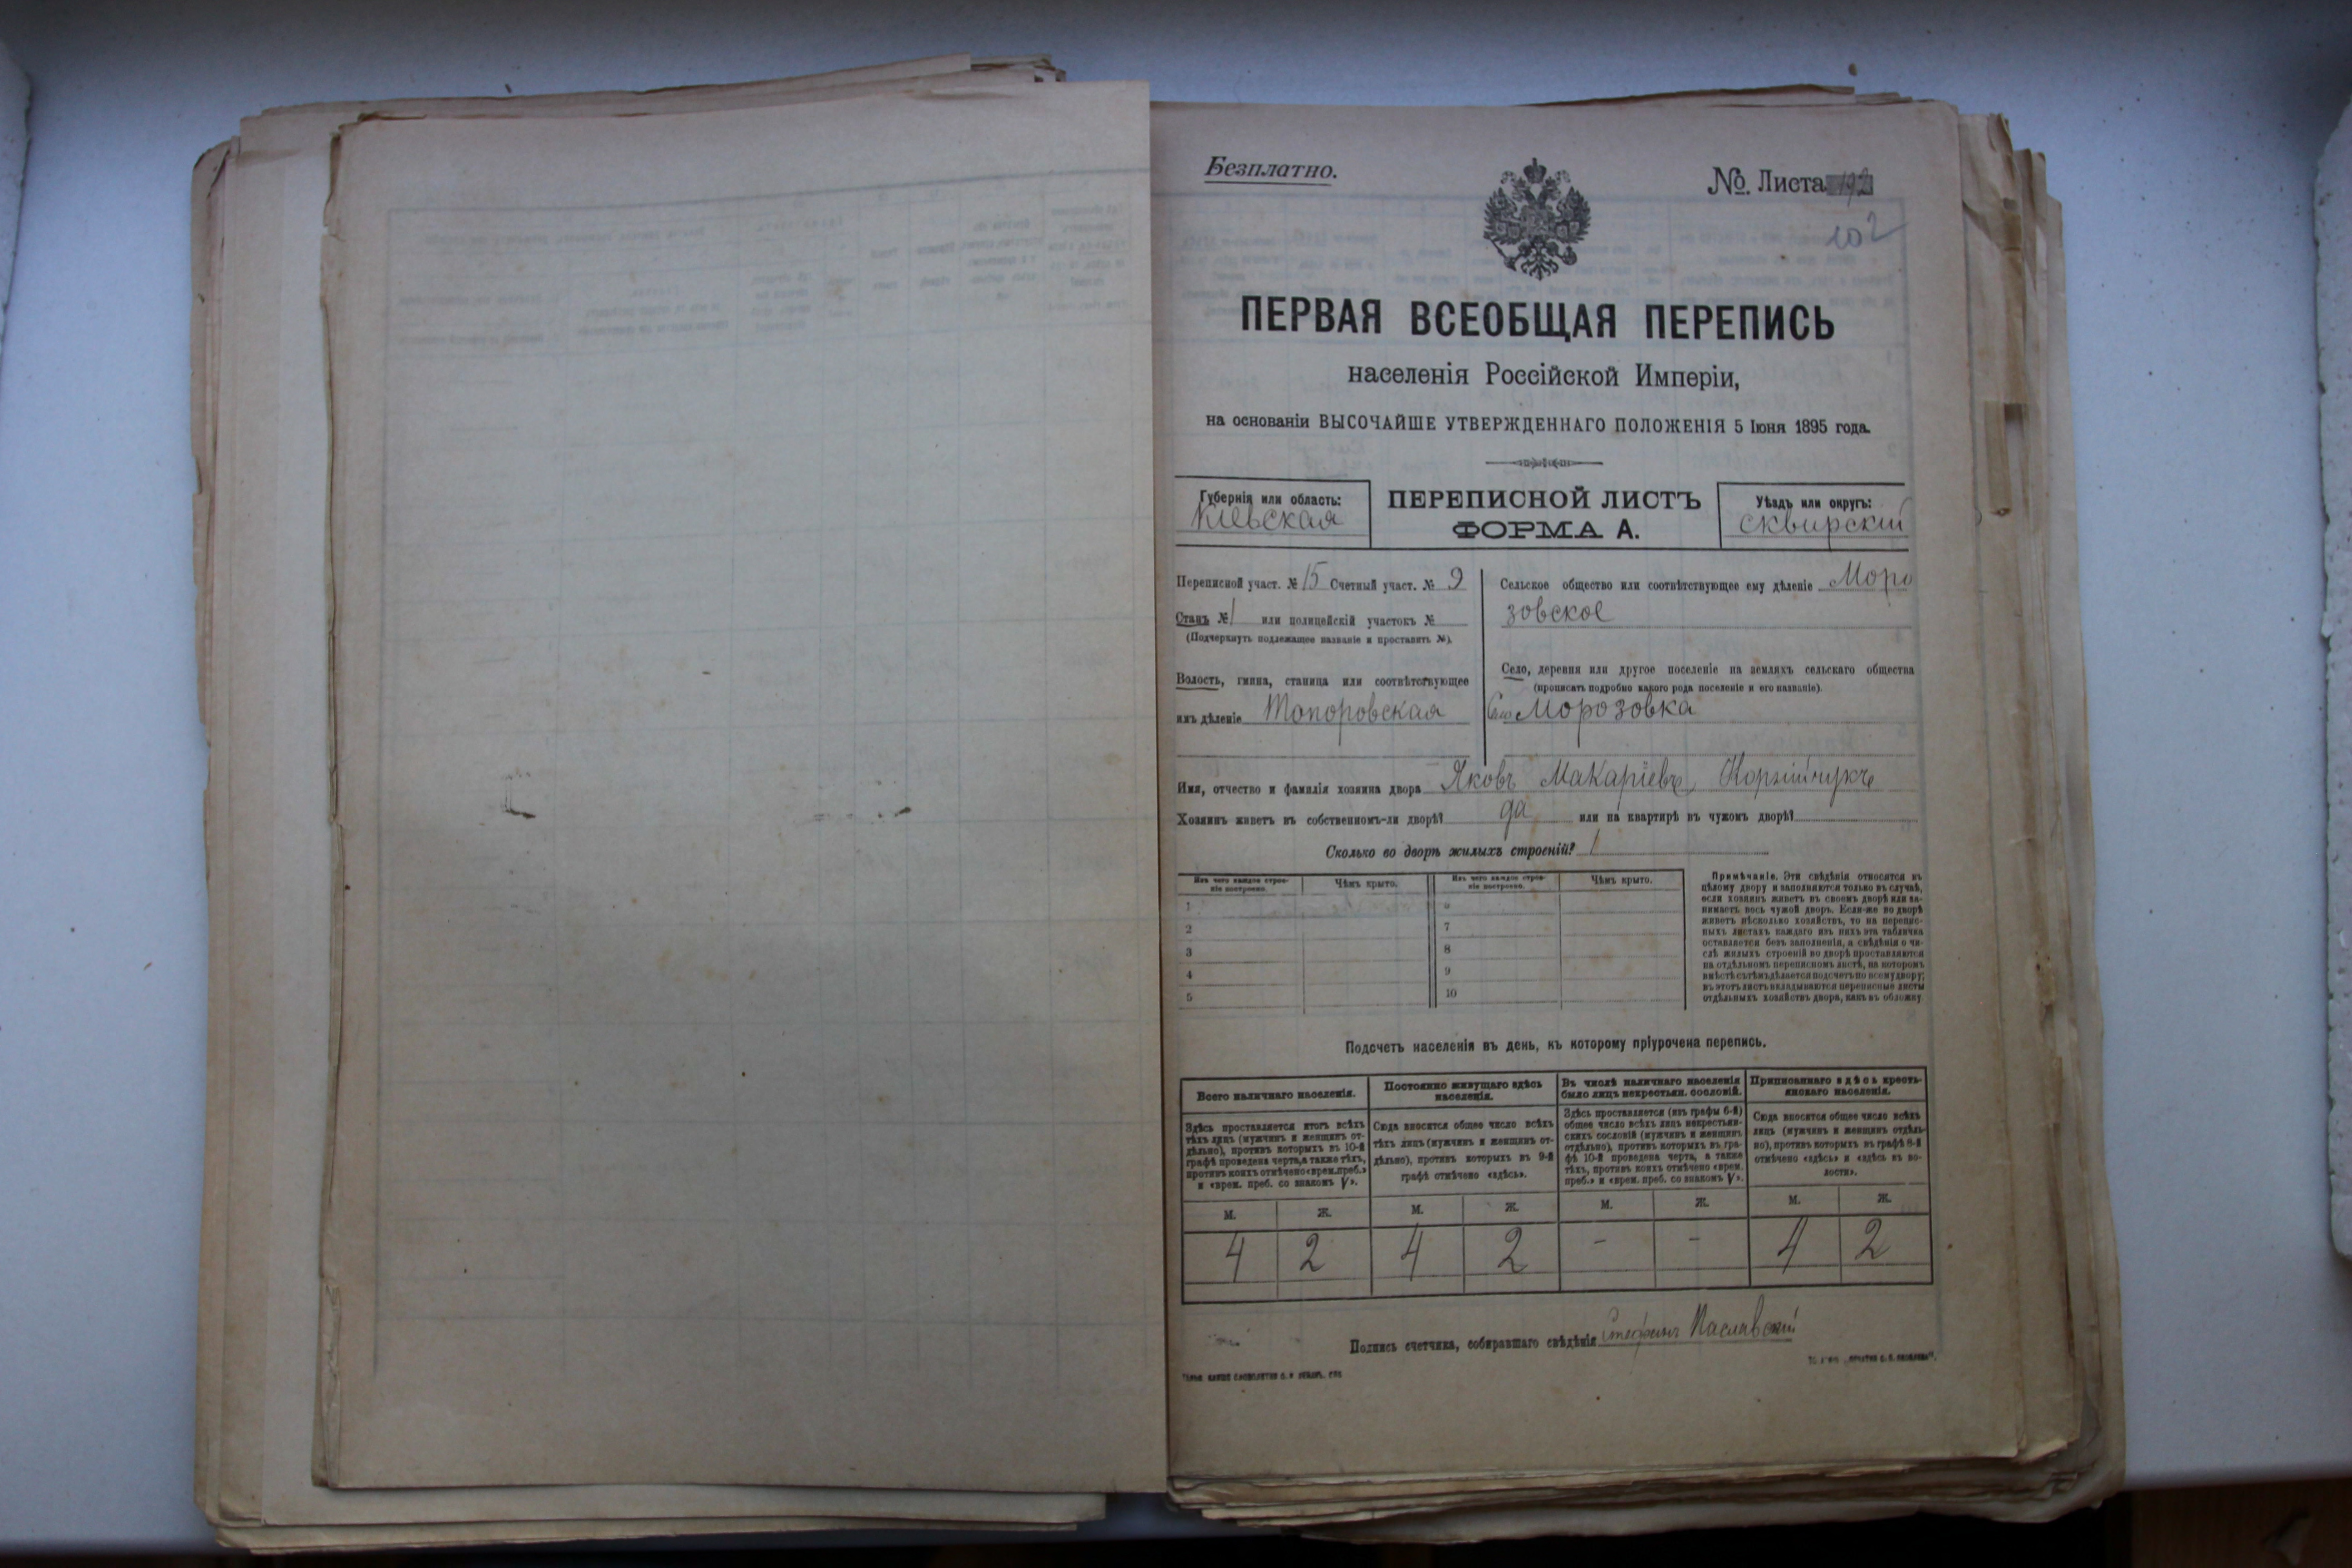 Безплатно.
№ Листа
102
ПЕРВАЯ ВСЕОБЩАЯ ПЕРЕПИСЬ
населенія Россійской Имперіи,
на основаніи ВЫСОЧАЙШЕ УТВЕРЖДЕННАГО ПОЛОЖЕНІЯ 5 Іюня 1895 года.
Губернія или область:
Кіевская
ПЕРЕПИСНОЙ ЛИСТЪ
ФОРМА А.
Уѣздъ или округъ:
Сквирскій
Переписной участ. № 15 Счетный участ. № 9
Станъ № 1 или полицейскій участокъ №
(Подчеркнуть подлежащее названіе и проставить №).
Волость, гмина, станица или соотвѣтствующее
имъ дѣленіе Топоровская
Сельское общество или соотвѣтствующее ему дѣленіе Моро
зовское
Село, деревня или другое поселеніе на земляхъ сельскаго общества
(прописать подробно какого рода поселеніе и его названіе).
Село Морозовка
Имя, отчество и фамилія хозяина двора Яковъ Макаріевъ
Хозяинъ живетъ въ собственномъ-ли дворѣ? да или на квартирѣ въ чужомъ дворѣ?
Сколько во дворѣ жилыхъ строеній? 1
Изъ чего каждое строе-
ніе построено.
Чѣмъ крыто.
Изъ чего каждое строе-
ніе построено.
Чѣмъ крыто.
1
2
3
4
5
6
7
8
9
10
Примѣчаніе. Эти свѣдѣнія относятся къ
цѣлому двору и заполняются только въ случаѣ,
если хозяинъ живетъ въ своемъ дворѣ или за-
нимаетъ весь чужой дворъ. Если-же во дворѣ
живетъ нѣсколько хозяйствъ, то на перепис-
ныхъ листахъ каждаго изъ нихъ эта табличка
оставляется безъ заполненія, а свѣдѣнія о чи-
слѣ жилыхъ строеній во дворѣ проставляются
на отдѣльномъ переписномъ листѣ, на которомъ
вмѣстѣ съ тѣмъ дѣлается подсчетъ по всему двору;
въ этотъ листъ вкладываются переписные листы
отдѣльныхъ хозяйствъ двора, какъ въ обложку
Подсчетъ населенія въ день, къ которому пріурочена перепись.
Всего наличнаго населенія.
Постоянно живущаго здѣсь
населенія.
Въ числѣ наличнаго населенія
было лицъ некрестьян. сословій.
Приписаннаго здѣсь кресть-
янскаго населенія.
Здѣсь проставляется итогъ всѣхъ
тѣхъ лицъ (мужчинъ и женщинъ от-
дѣльно), противъ которыхъ въ 10-й
графѣ проведена черта, а также тѣхъ,
противъ коихъ отмѣчено «врем. преб.»
и «врем. преб. со знакомъ V».
Сюда вносится общее число всѣхъ
тѣхъ лицъ (мужчинъ и женщинъ от-
дѣльно), противъ которыхъ въ 9-й
графѣ отмѣчено «здѣсь».
Здѣсь проставляется (изъ графы 6-й)
общее число всѣхъ лицъ некрестьян-
скихъ сословій (мужчинъ и женщинъ
отдѣльно), противъ которыхъ въ гра-
фѣ 10-й проведена черта, а также
тѣхъ, противъ коихъ отмѣчено «врем.
преб.» и «врем. преб. со знакомъ V».
Сюда вносится общее число всѣхъ
лицъ (мужчинъ и женщинъ отдѣль-
но), противъ которыхъ въ графѣ 8-й
отмѣчено «здѣсь» и «здѣсь въ во-
лости».
М. Ж. М. Ж. М. Ж. М. Ж.
4 2 4 2 - - 4 2
Подпись счетчика, собиравшаго свѣдѣнія Стефанъ Паславскій